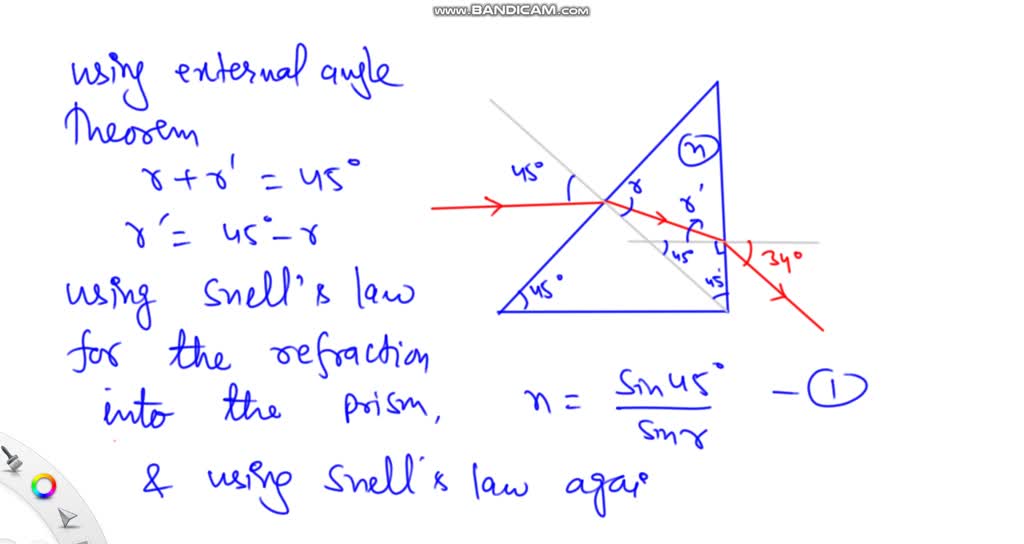 www.BANDICAM.com
using external angle
Theorem
r + r' = 45°
r' = 45° - r
using Snell's law
for the refraction
into the prism,
n = sin 45° / sin r - ①
& using Snell's law agai
45°
r
n
r'
45
45
34°
45°